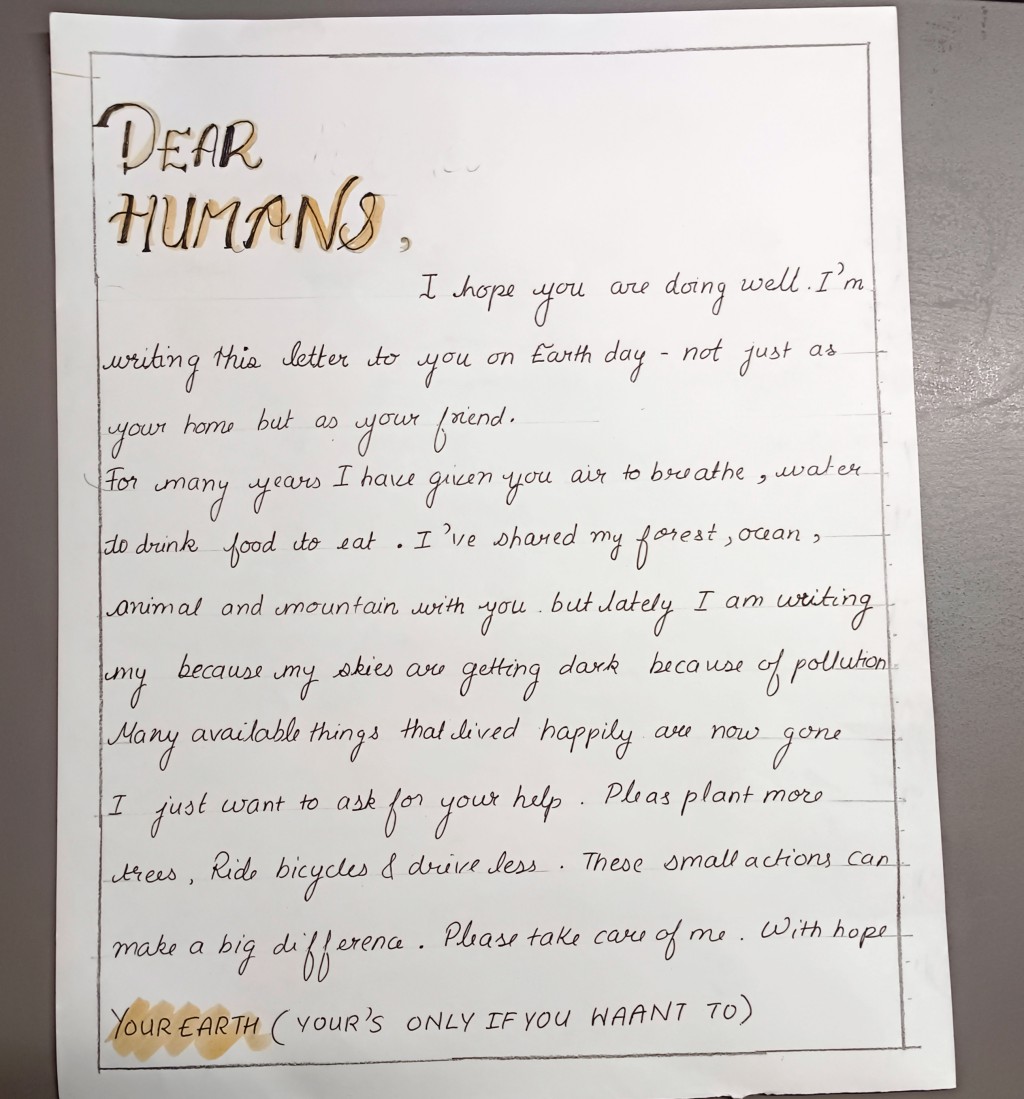 DEAR
HUMANS,
I hope you are doing well. I'm
writing this letter to you on Earth day - not just as
your home but as your friend.
For many years I have given you air to breathe, water
to drink food to eat. I've shared my forest, ocean,
animal and mountain with you. but lately I am writing
my because my skies are getting dark because of pollution
Many available things that lived happily are now gone
I just want to ask for your help. Pleas plant more
trees, Ride bicycles & drive less. These small actions can
make a big difference. Please take care of me. With hope
YOUR EARTH (YOUR'S ONLY IF YOU WAANT TO)